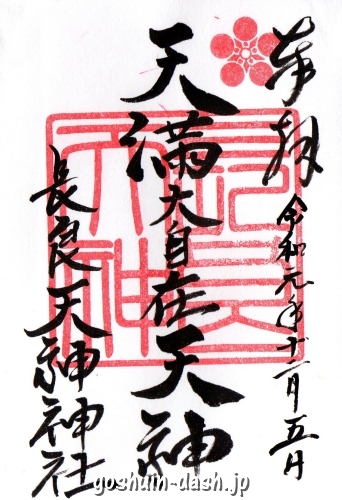 奉拝 令和元年十一月五日
天満大自在天神
長良天神神社
goshuin-dash.jp